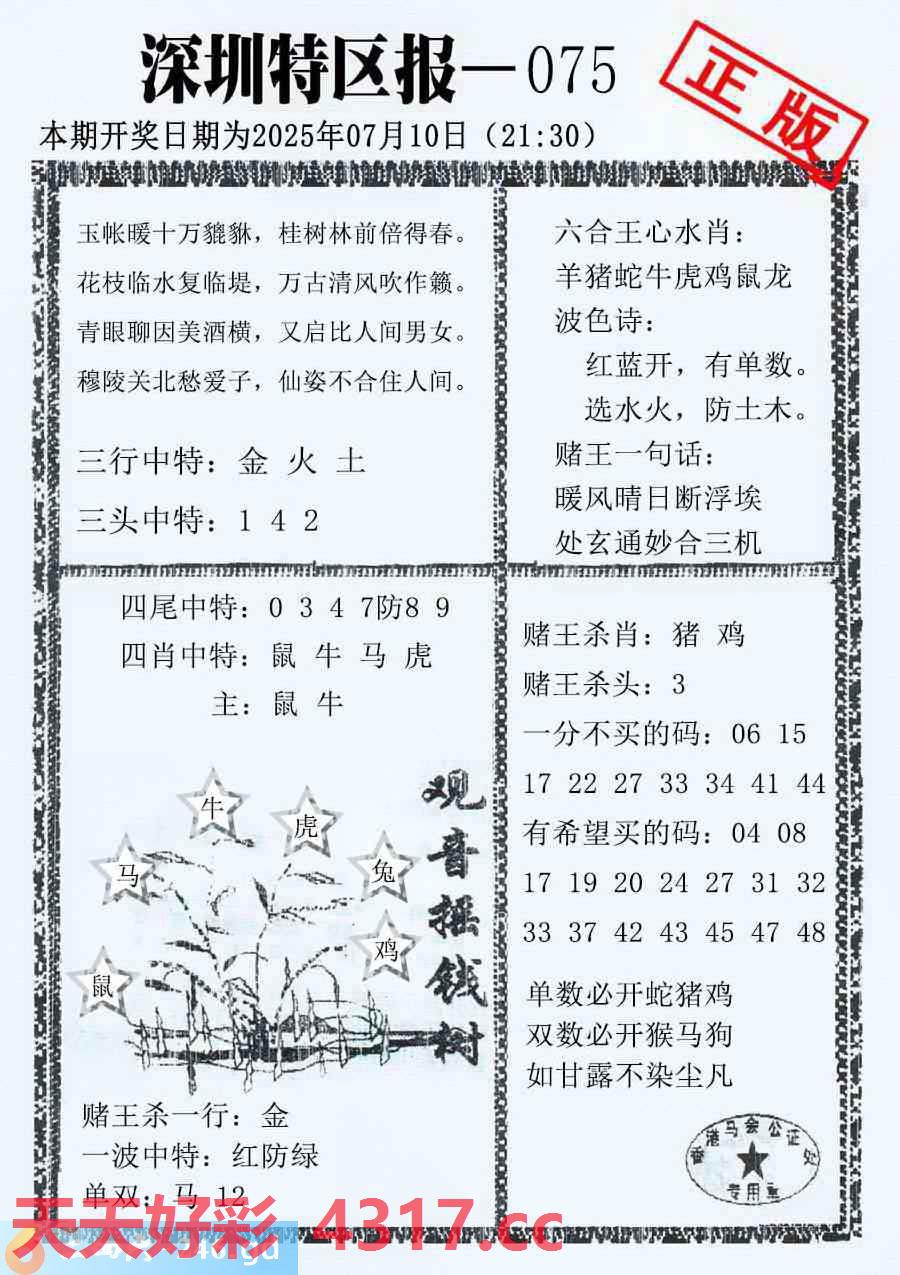 深圳特区报—075
正版
本期开奖日期为2025年07月10日（21:30）
玉帐暖十万貔貅，桂树林前倍得春。
花枝临水复临堤，万古清风吹作籁。
青眼聊因美酒横，又启比人间男女。
穆陵关北愁爱子，仙姿不合住人间。
三行中特：金 火 土
三头中特：1 4 2
六合王心水肖：
羊猪蛇牛虎鸡鼠龙
波色诗：
红蓝开，有单数。
选水火，防土木。
赌王一句话：
暖风晴日断浮埃
处玄通妙合三机
四尾中特：0 3 4 7防8 9
四肖中特：鼠 牛 马 虎
主：鼠 牛
牛
虎
马
兔
鸡
鼠
观音摇钱树
赌王杀一行：金
一波中特：红防绿
单双：马 12
赌王杀肖：猪 鸡
赌王杀头：3
一分不买的码：06 15
17 22 27 33 34 41 44
有希望买的码：04 08
17 19 20 24 27 31 32
33 37 42 43 45 47 48
单数必开蛇猪鸡
双数必开猴马狗
如甘露不染尘凡
香港马会公证处
专用章
天天好彩 4317.cc